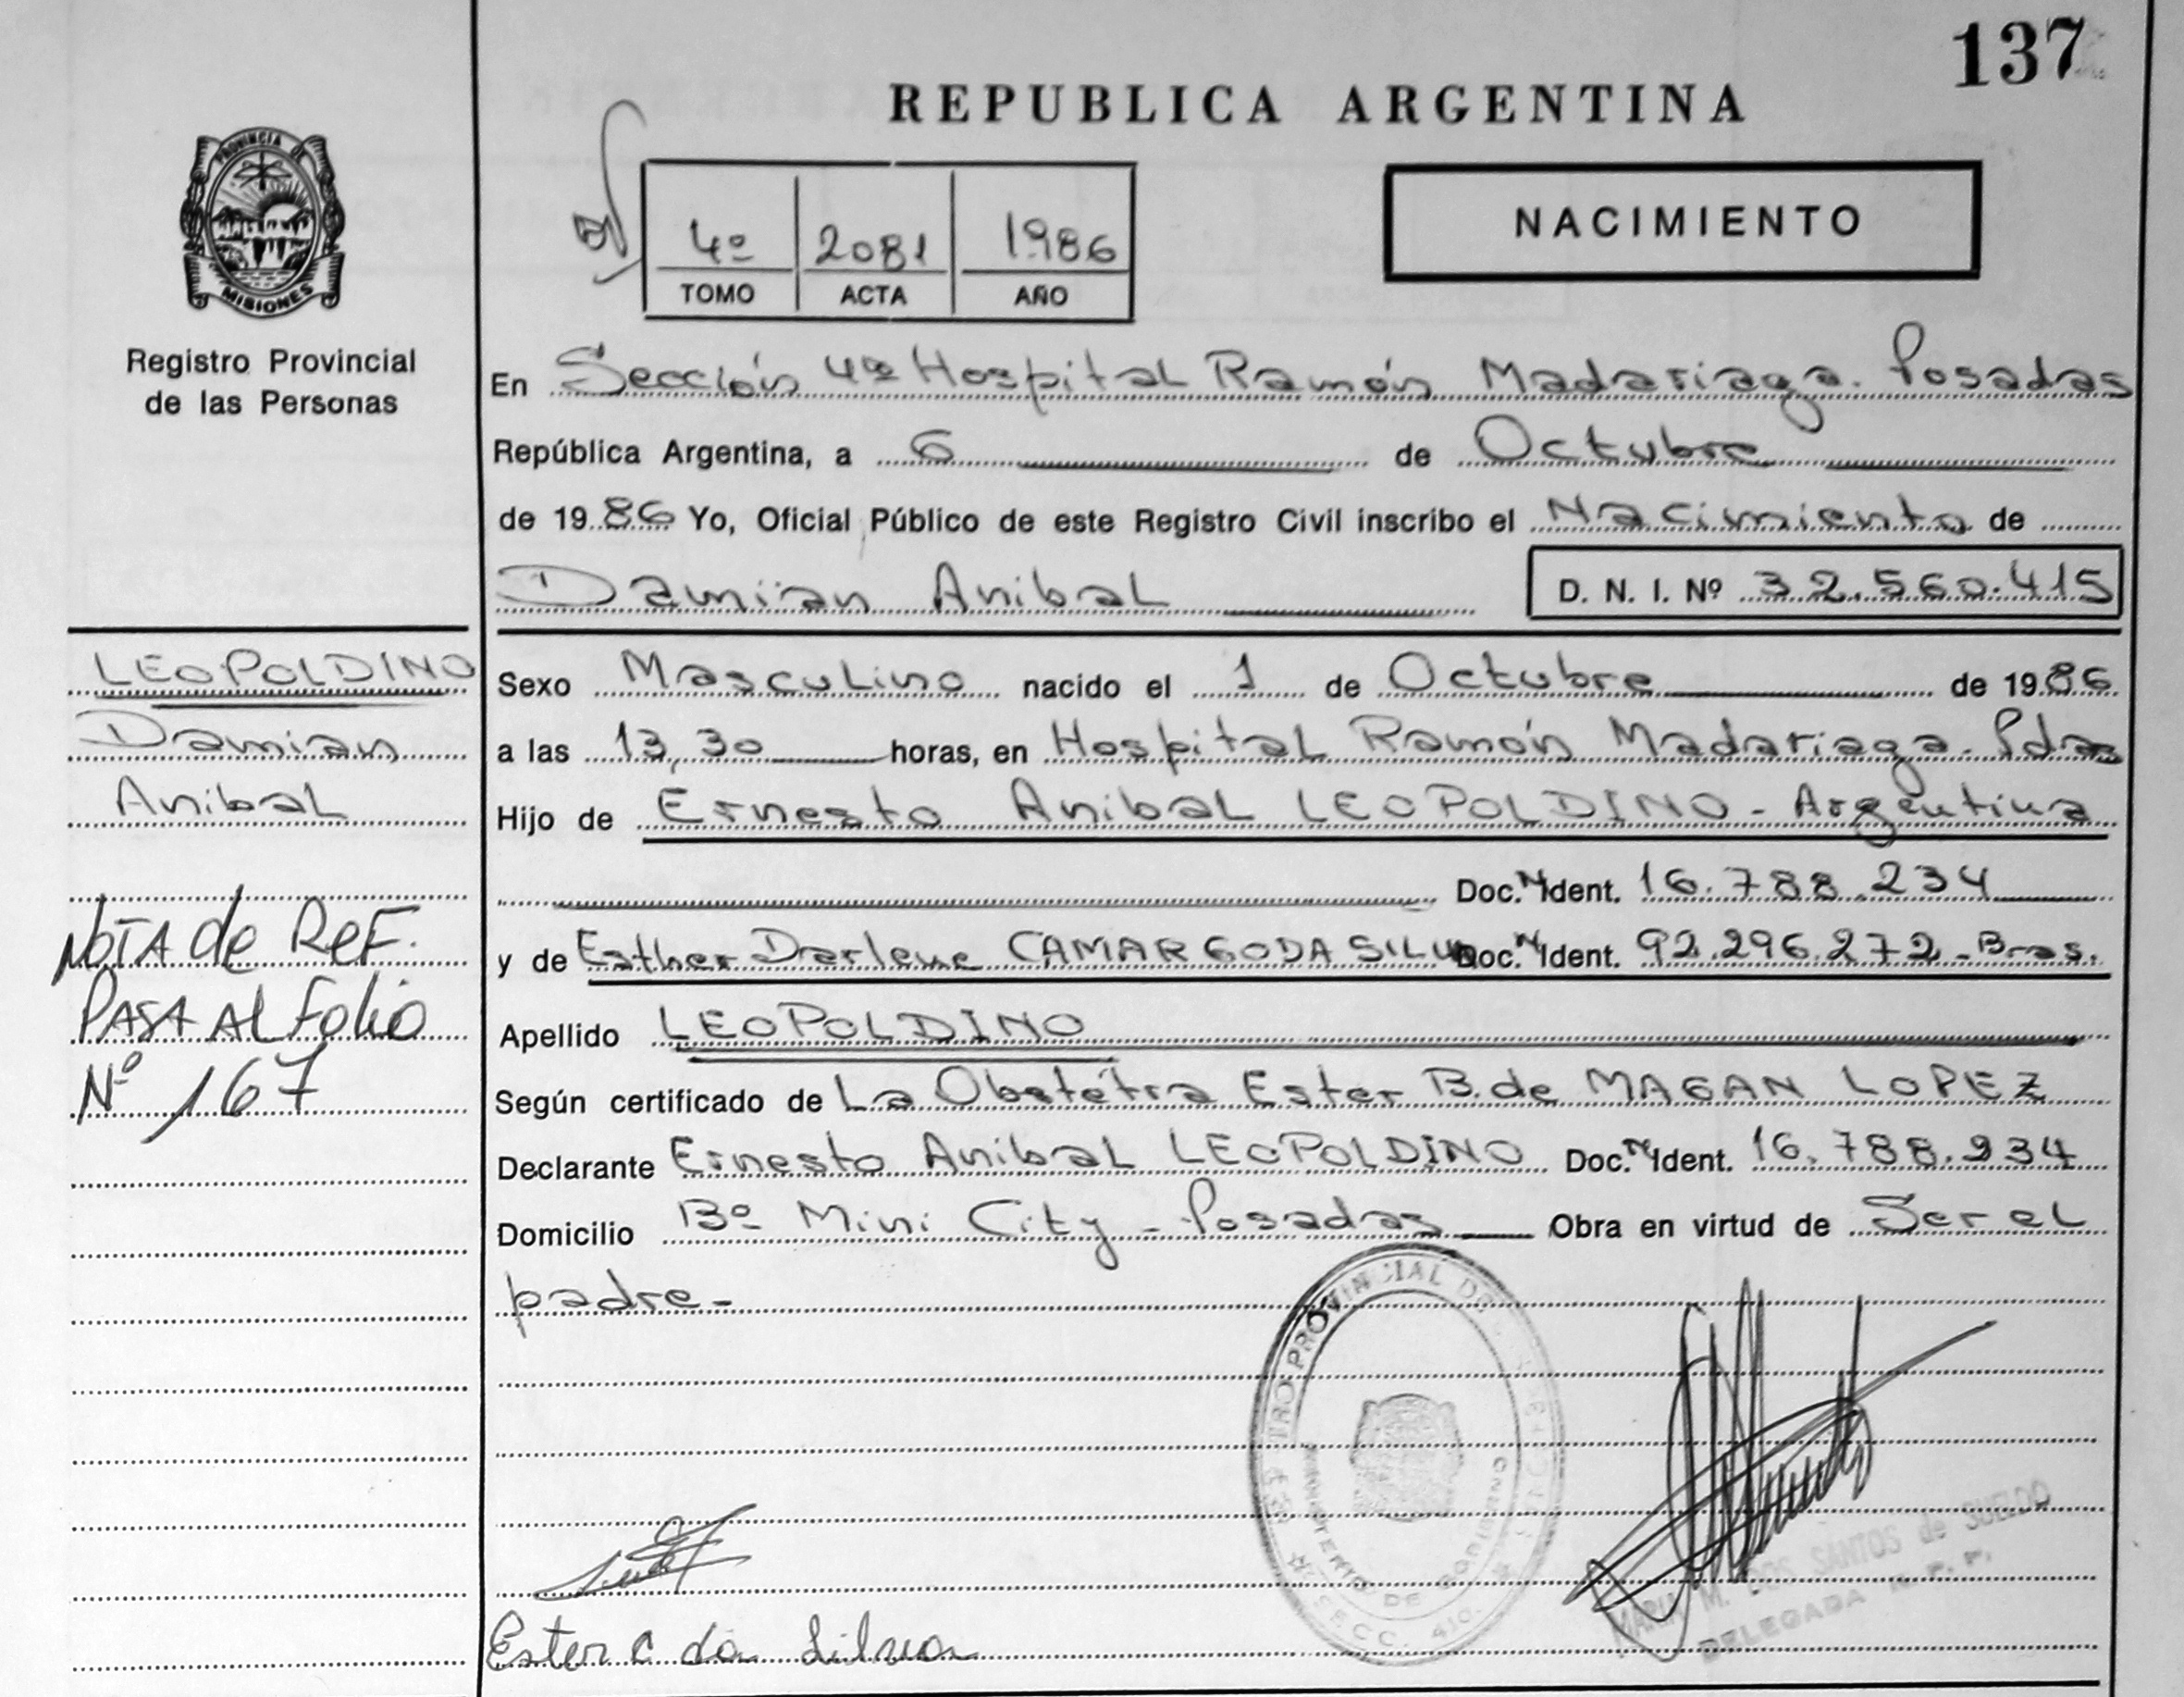 137
REPUBLICA ARGENTINA
PROVINCIA DE
MISIONES
Registro Provincial
de las Personas
4º 2081 1986
TOMO ACTA AÑO
NACIMIENTO
En Sección 4ª Hospital Ramón Madariaga. Posadas
República Argentina, a 6 de Octubre
de 1986 Yo, Oficial Público de este Registro Civil inscribo el Nacimiento de
Damián Anibal D. N. I. Nº 32.560.415
LEOPOLDINO
Damian
Anibal
NOTA de ReF.
PASA Al Folio
Nº 167
Sexo Masculino nacido el 1 de Octubre de 1986
a las 13,30 horas, en Hospital Ramón Madariaga. Pdas
Hijo de Ernesto Anibal LEOPOLDINO - Argentina
Doc. N Ident. 16.788.234
y de Esther Darlene CAMARGO DA SILVA Doc. N Ident. 92.296.272 - Bras.
Apellido LEOPOLDINO
Según certificado de La Obstétra Ester B. de MAGAN LOPEZ
Declarante Ernesto Anibal LEOPOLDINO Doc. N Ident. 16.788.234
Domicilio Bº Mini City - Posadas Obra en virtud de Ser el
padre -
PROVINCIAL DE
SECC. 4TO.
MARIA M. DOS SANTOS de SUELDO
DELEGADA R. P. P.
Ester C da Silva